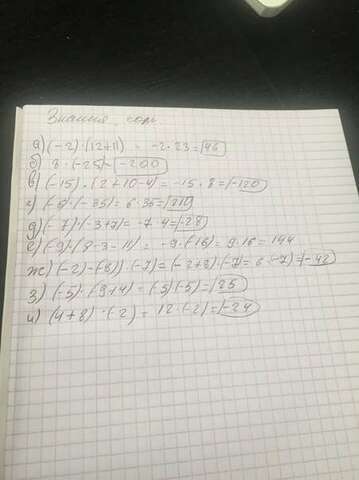 Знания сом
а) (-2)·(12+11) = -2·23=46
б) 8·(-25)=-200
в) (-15)·(2+10-4)=-15·8=-120
г) (-6)·(-35)=6·35=210
д) (-7)·(-3+7)=-7·4=-28
е) (-9)·(8-3-11)= -9·(-16)=9·16=144
ж) (-2)-(8))·(-7)=(-2+8)·(-7)=6·(-7)=-42
з) (-5)·(9+4)=(-5)(-5)=25
и) (4+8)·(-2)= 12·(-2)=-24